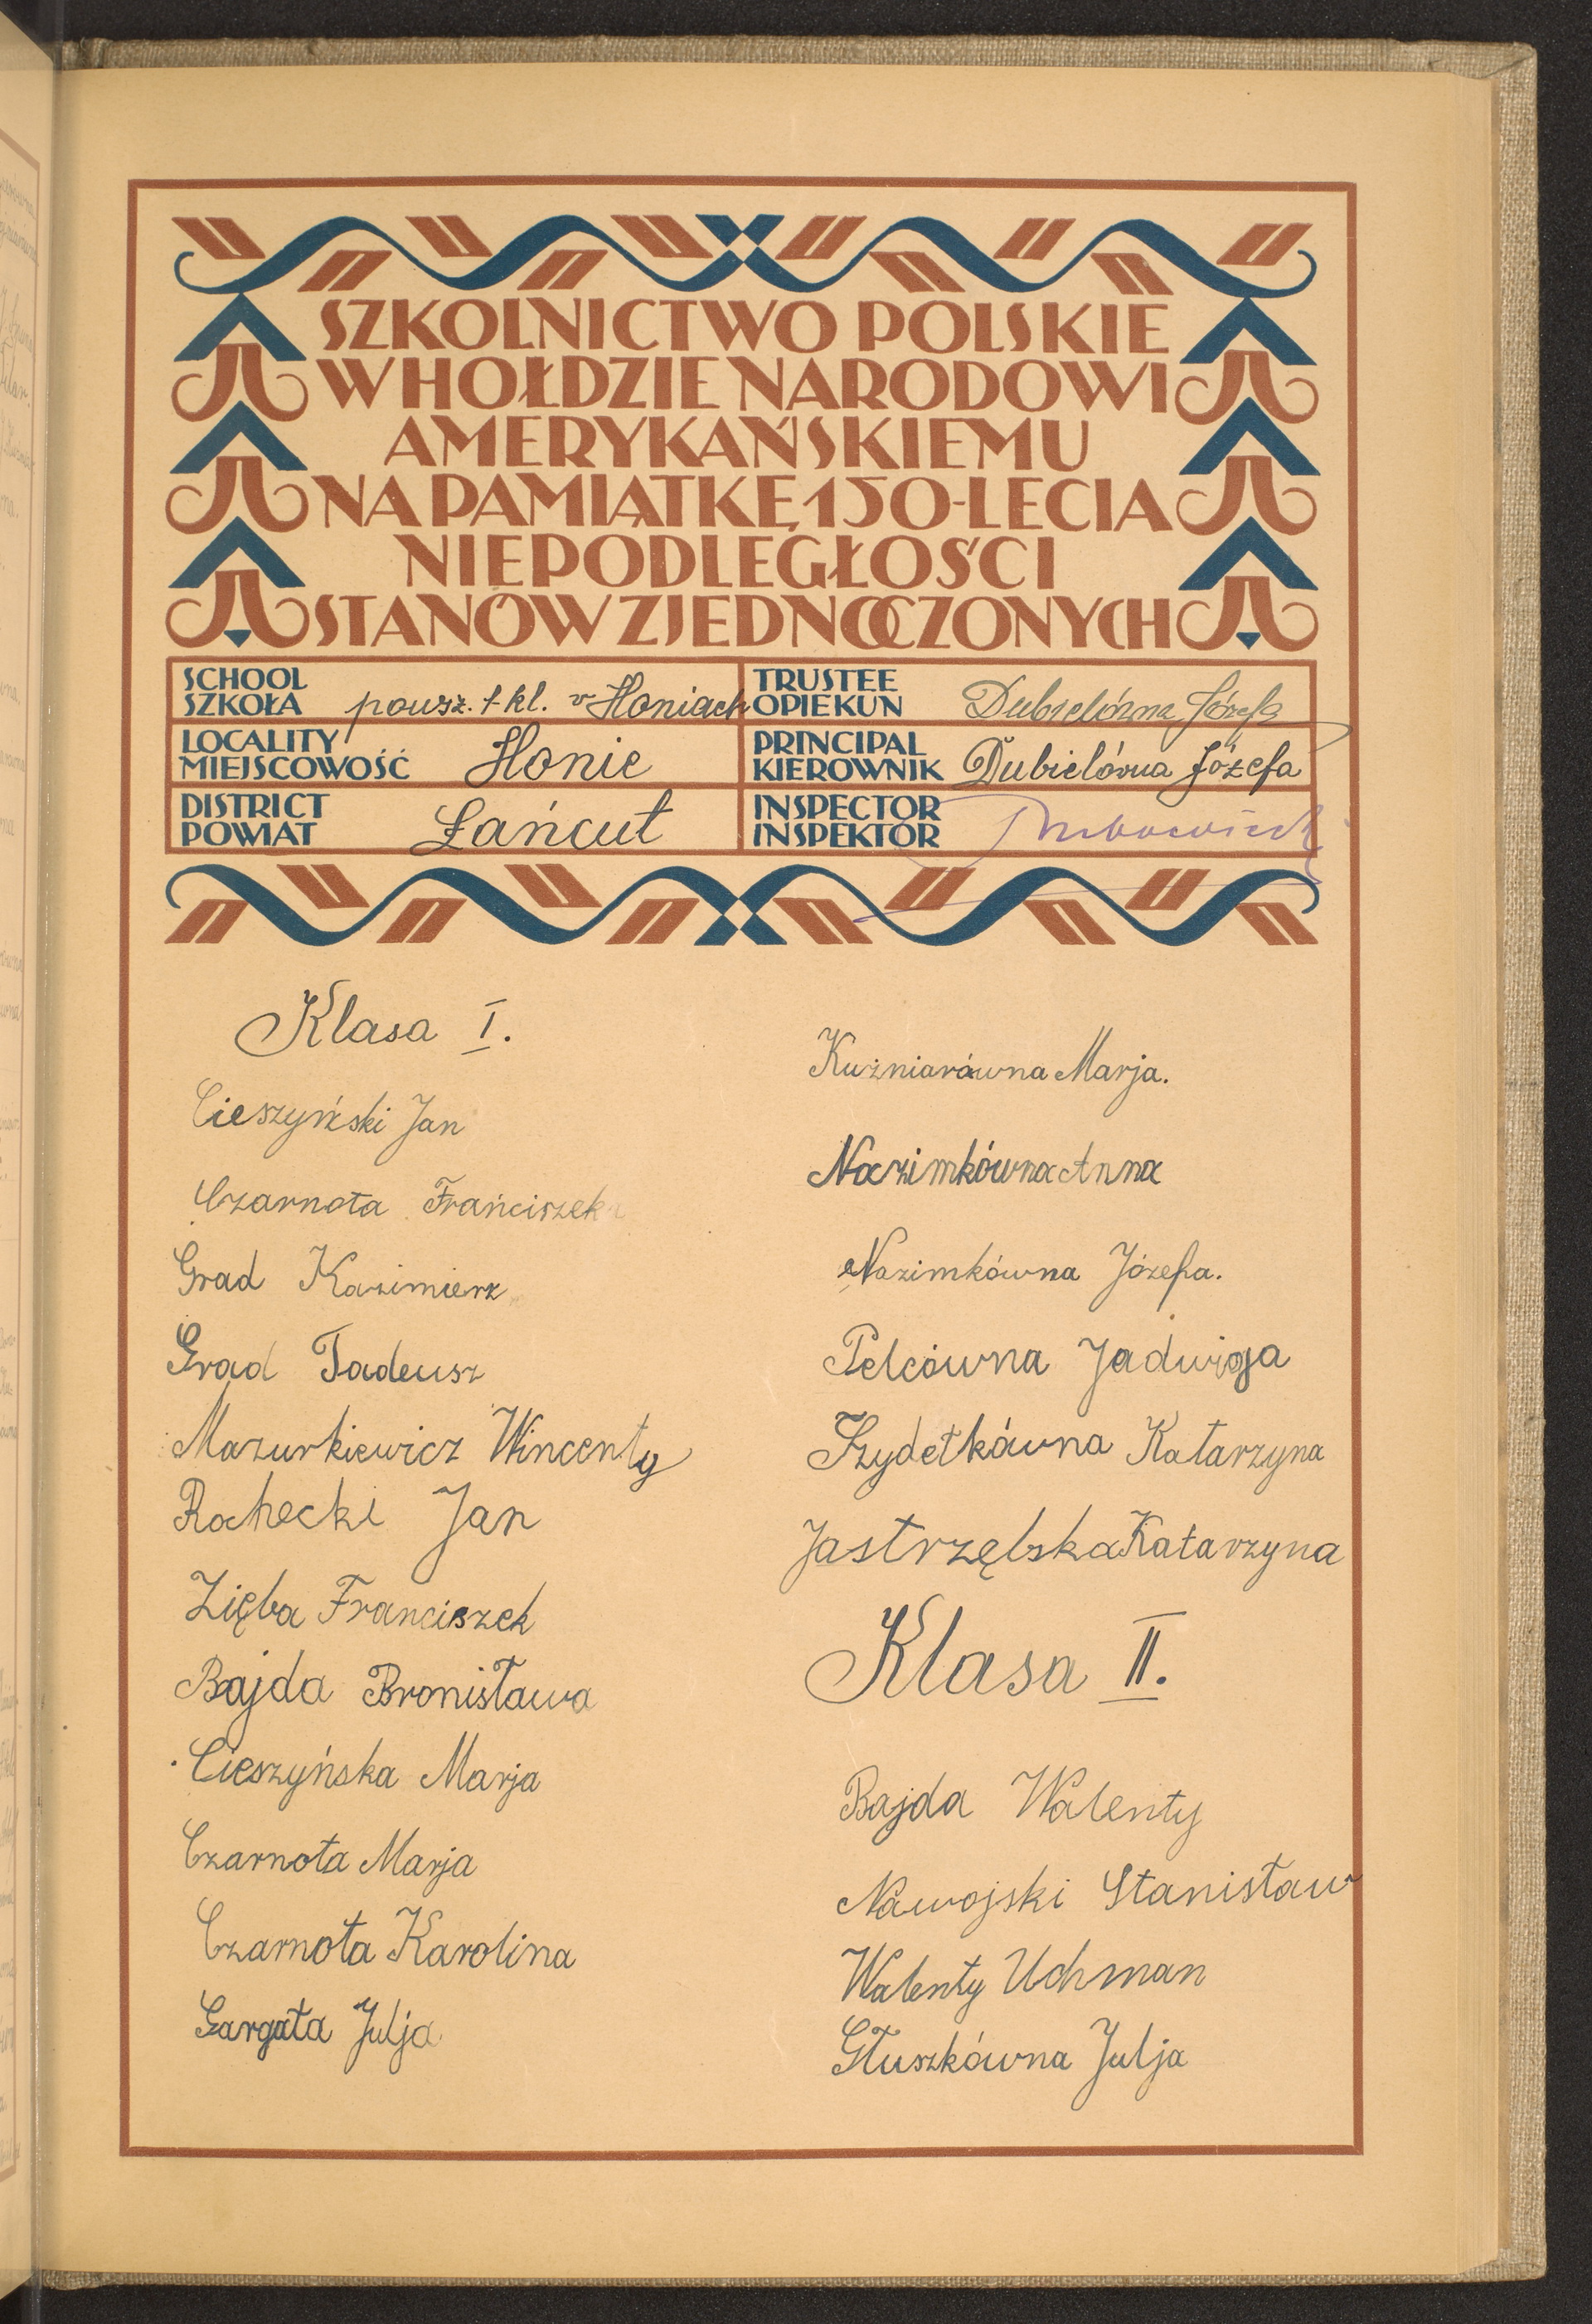 SZKOLNICTWO POLSKIE
W HOŁDZIE NARODOWI
AMERYKAŃSKIEMU
NA PAMIĄTKĘ 150-LECIA
NIEPODLEGŁOŚCI
STANÓW ZJEDNOCZONYCH
SCHOOL
SZKOŁA powsz. 1-kl. w Honiach
TRUSTEE
OPIEKUN Dubielówna Józefa
LOCALITY
MIEJSCOWOŚĆ Honie
PRINCIPAL
KIEROWNIK Dubielówna Józefa
DISTRICT
POWIAT Łańcut
INSPECTOR
INSPEKTOR
Klasa I.
Cieszyński Jan
Czarnota Franciszek
Grad Kazimierz
Grad Tadeusz
Mazurkiewicz Wincenty
Rachecki Jan
Zięba Franciszek
Bajda Bronisława
Cieszyńska Marja
Czarnota Marja
Czarnota Karolina
Gargała Julja
Kuźniarówna Marja.
Nazimkówna Anna
Nazimkówna Józefa.
Pelcówna Jadwiga
Szydełkówna Katarzyna
Jastrzębska Katarzyna
Klasa II.
Bajda Walenty
Nawojski Stanisław
Walenty Uchman
Głuszkówna Julja